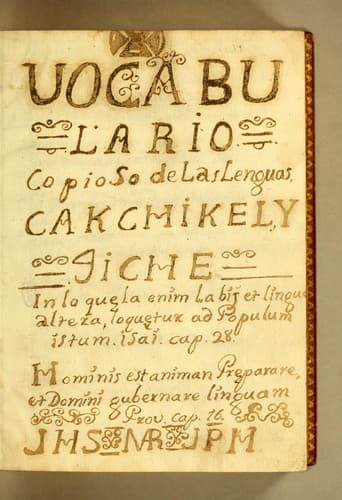 UOCABU
LARIO
Copioso de Las Lenguas,
CAKCHIKEL, Y
9ICHE
In loquęla enim labij et lingue
altera, loquętur ad Populum
istum. isai. cap. 28.
Hominis est animan Pręparare,
et Domini gubernare linguam
Prov. cap. 16.
JHS NR JPM